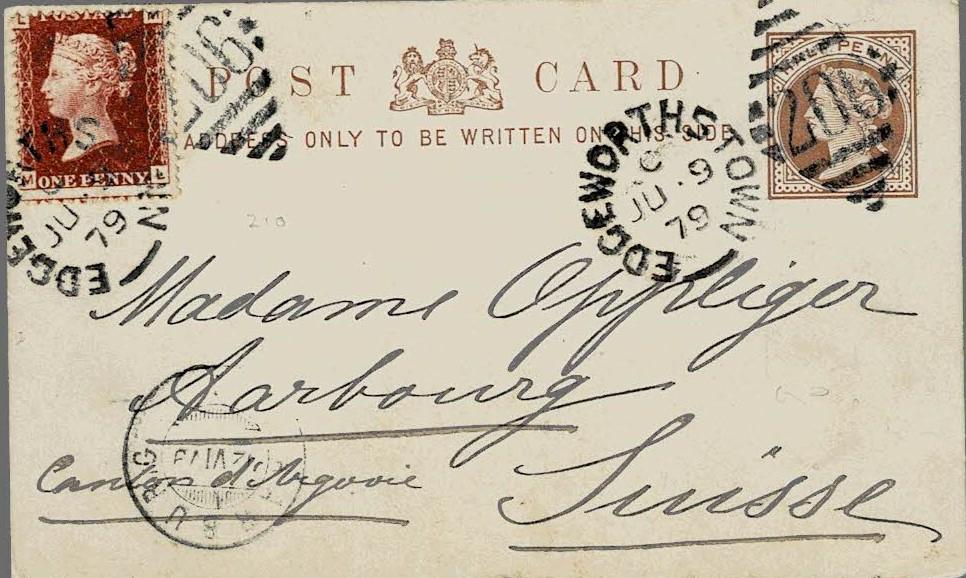 L POSTAGE M
M ONE PENNY L
206
POST CARD
ADDRESS ONLY TO BE WRITTEN ON THIS SIDE
HALF PENNY
206
EDGEWORTHSTOWN
JU 9
79
EDGEWORTHSTOWN
C
JU . 9
79
210
Madame Oppliger
Aarbourg
Canton d'Argovie
Suisse